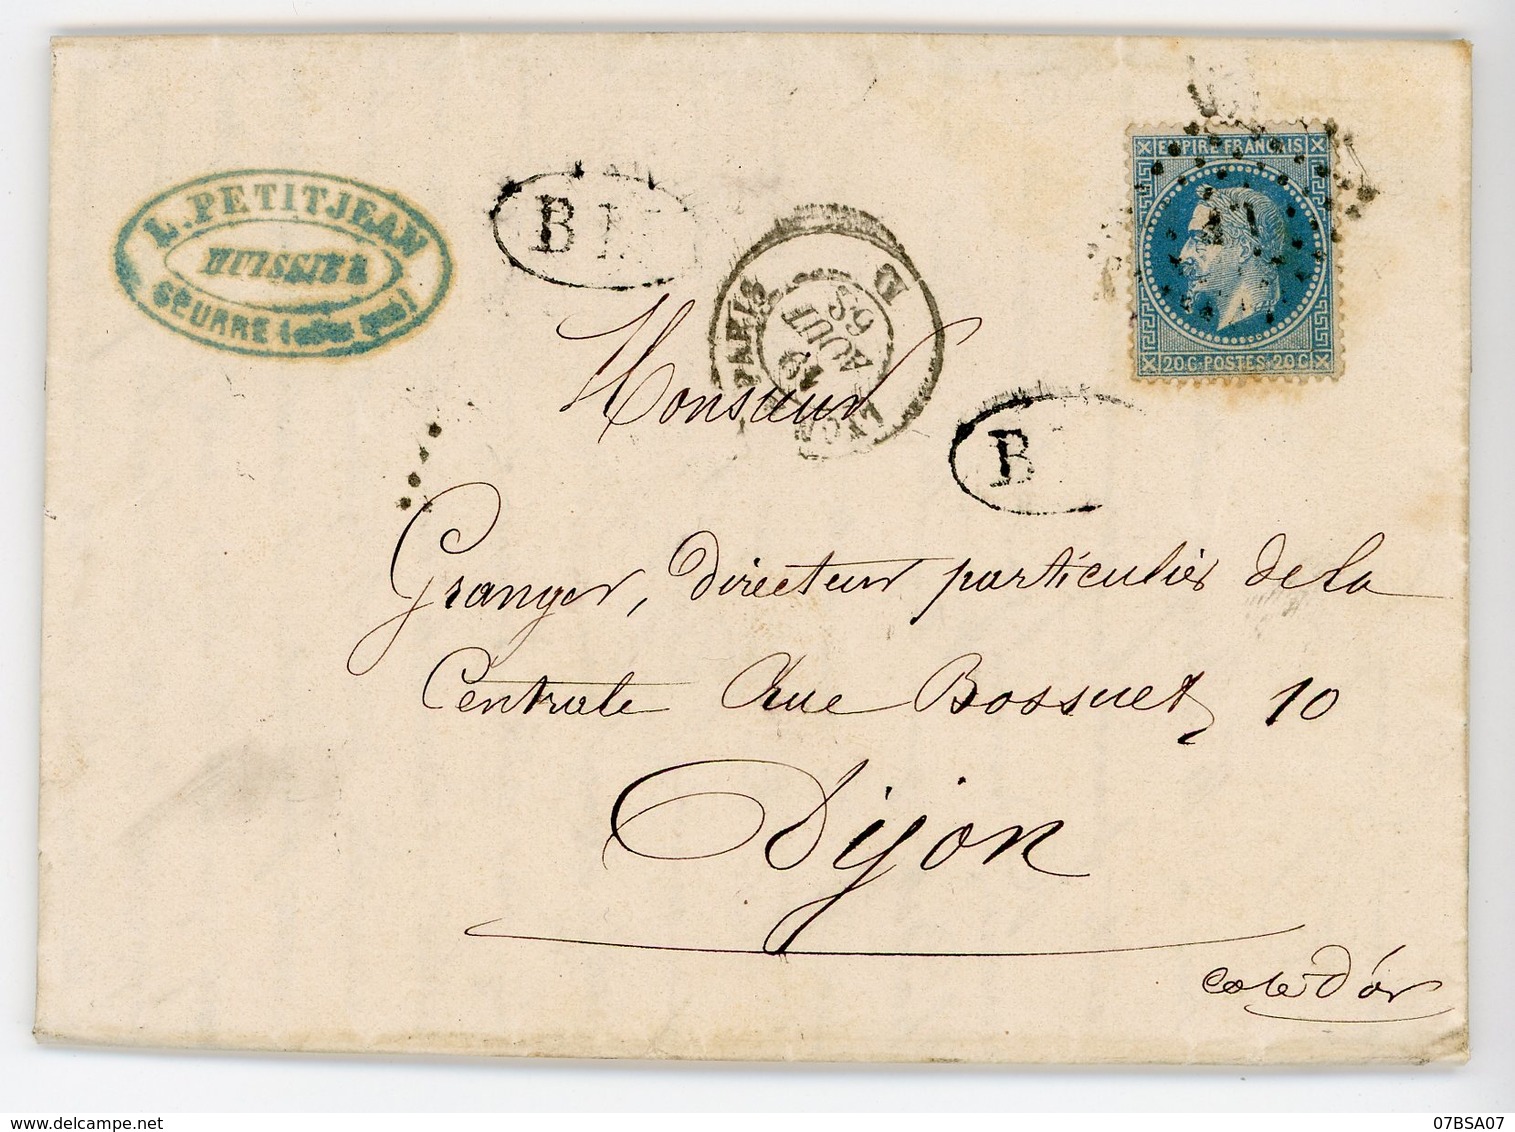 L. PETITJEAN
HUISSIER
SEURRE
B
EMPIRE FRANÇAIS
20 C. POSTES 20 C
PARIS
AOUT
68
B
Monsieur
Granger, directeur particulier de la
Centrale Rue Bossuet 10
Dijon
Cote d'or
07BSA07